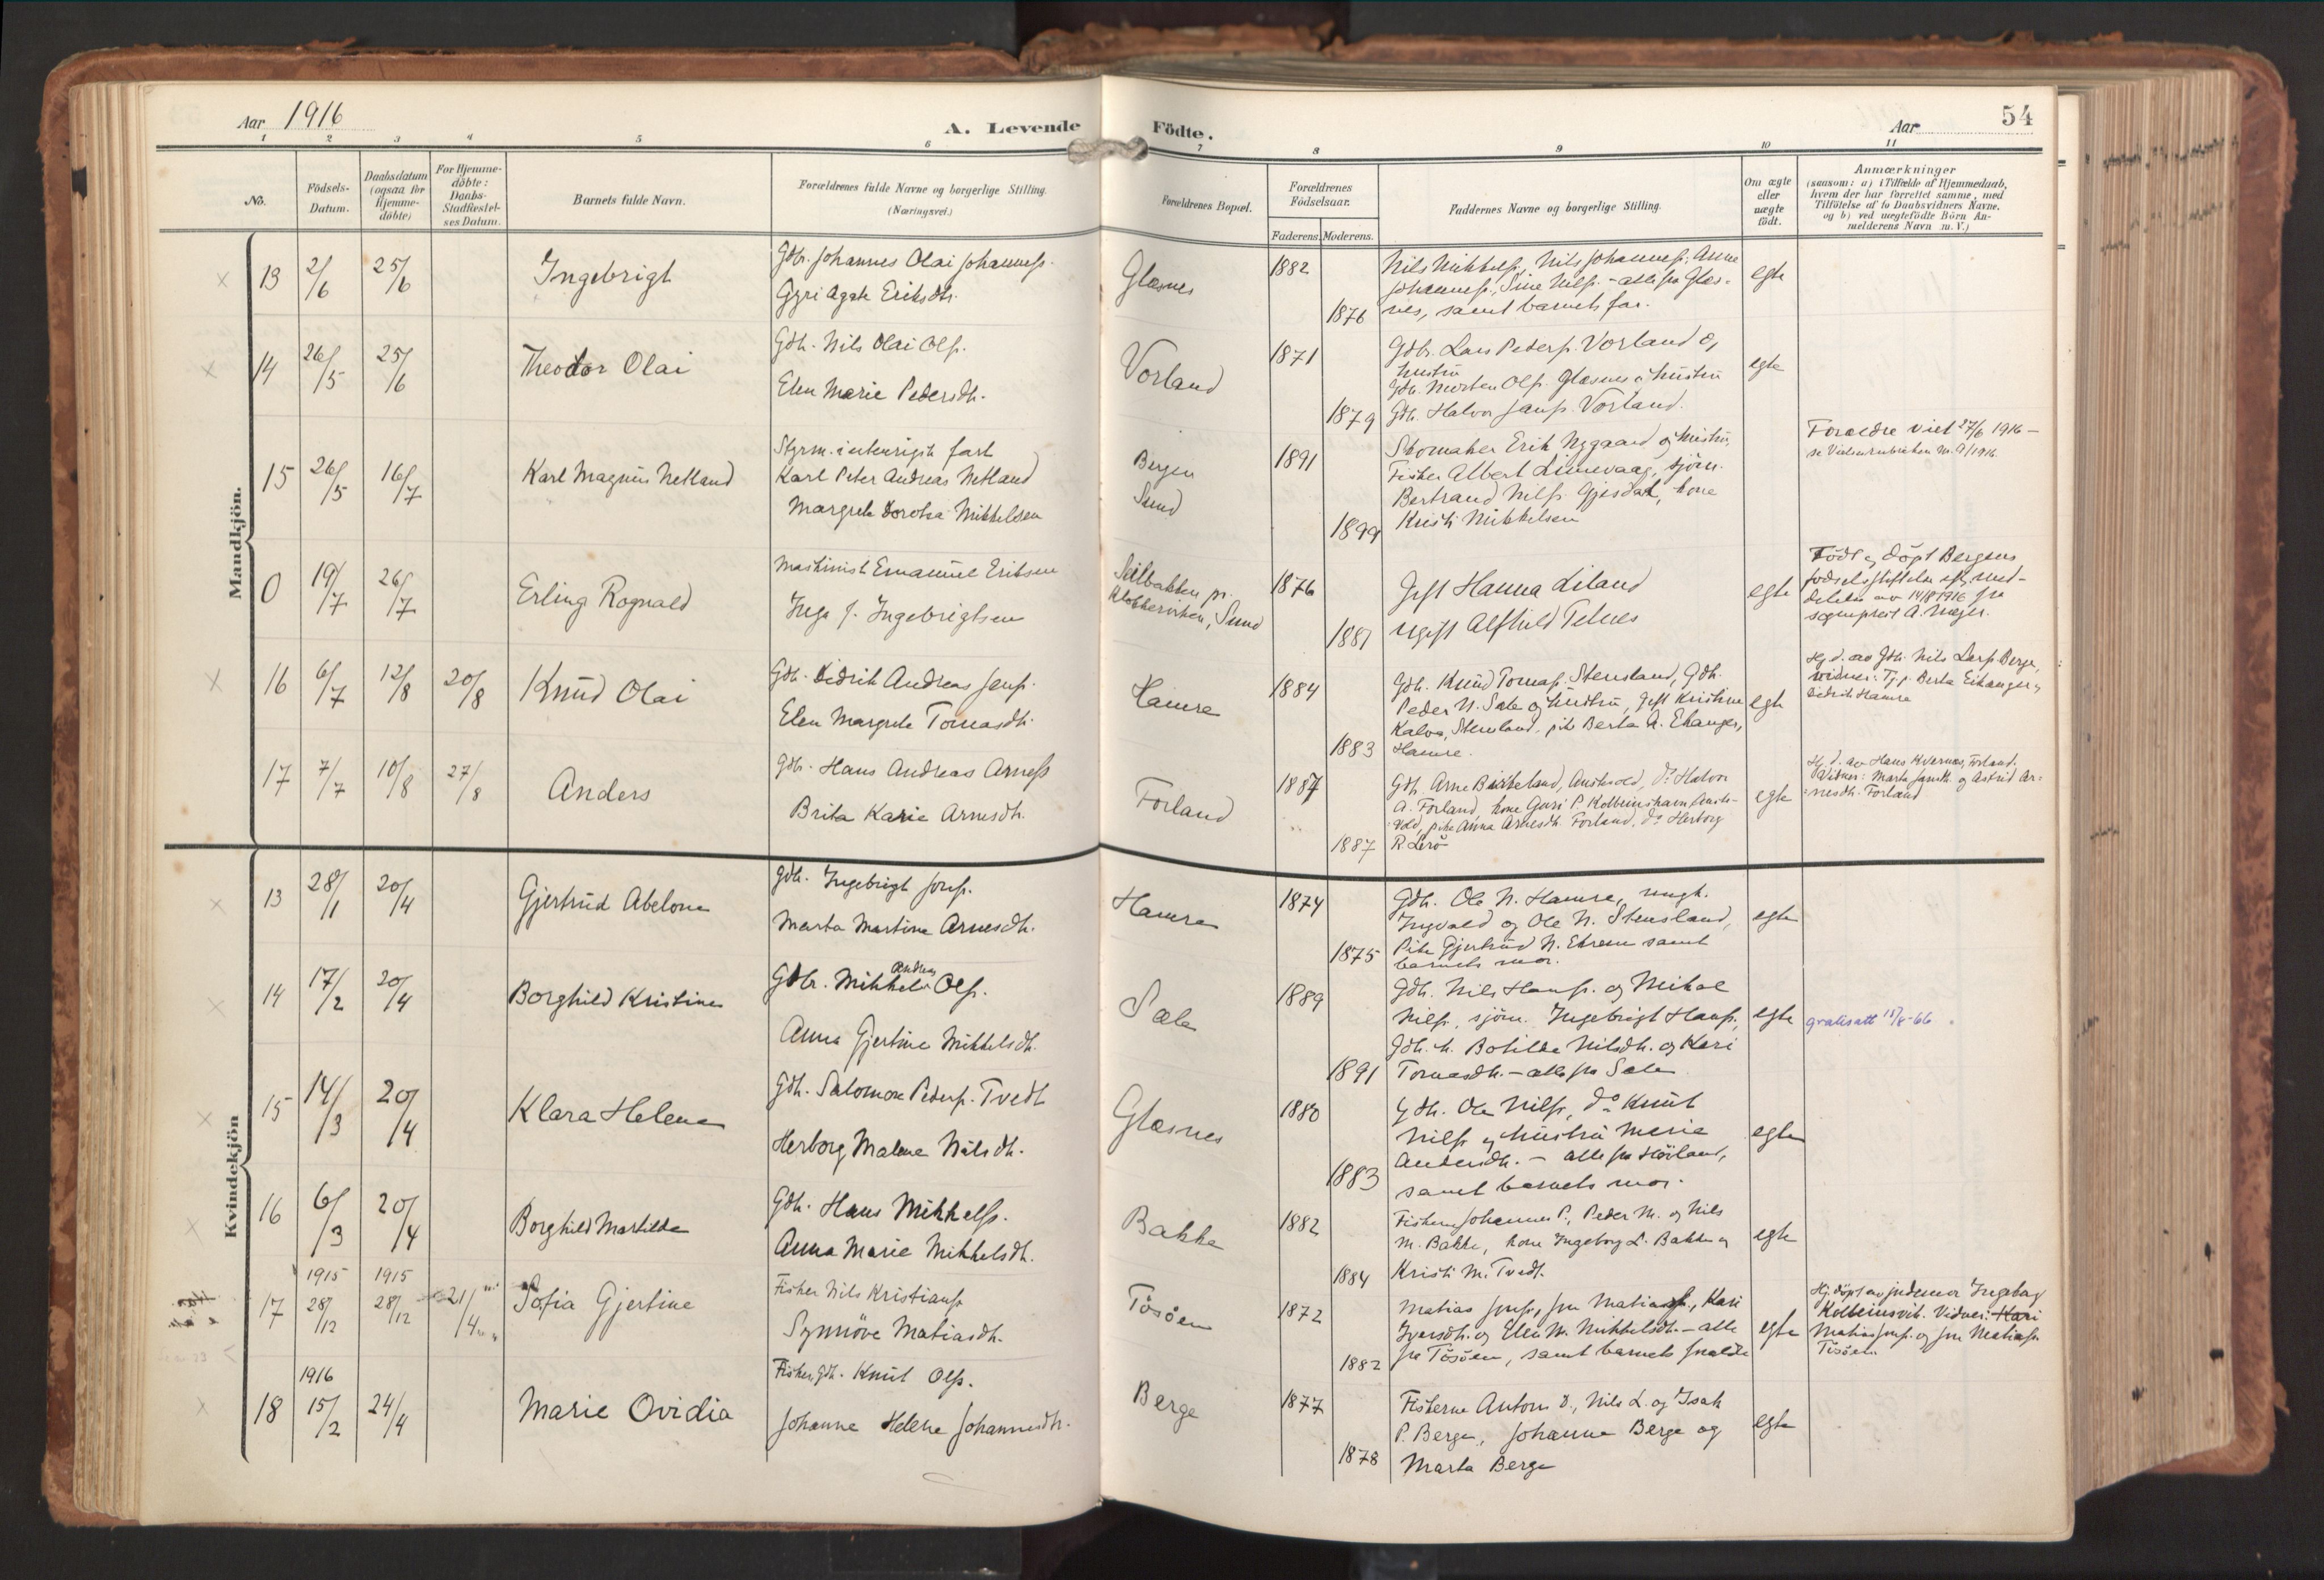 Aar 1916
A. Levende Födte.
Aar
54
1 2 3 4 5 6 7 8 9 10 11
No.
Födsels-
Datum.
Daabsdatum
(ogsaa for
Hjemme-
döbte)
For Hjemme-
döbte:
Daabs-
Stadfæstel-
ses Datum.
Barnets fulde Navn.
Forældrenes fulde Navne og borgerlige Stilling.
(Næringsvei.)
Forældrenes Bopæl.
Forældrenes
Födselsaar.
Faderens. Moderens.
Faddernes Navne og borgerlige Stilling.
Om ægte
eller
uægte
födt.
Anmærkninger
(saasom: a) i Tilfælde af Hjemmedaab,
hvem der har forrettet samme, med
Tilföielse af to Daabsvidners Navne.
og b) ved uægtefödte Börn An-
melderens Navn m. V.)
Mandkjön.
13 2/6 25/6 Ingebrigt
Gdbr. Johannes Olai Johanness.
Gyri Agate Eriksdtr.
Glæsnes 1882 1876
Nils Mikkelss., Nils Johanness. Anne
Johanness., Sine Nilss. - alle fra Glæs-
nes, samt barnets far.
egte
14 26/5 25/6 Theodor Olai
Gdbr. Nils Olai Ols.
Elen Marie Pedersdtr.
Vorland 1871 1879
Gdbr. Lars Peders. Vorland og
hustru
Gdbr. Morten Ols. Glæsnes og hustru
Gdbr. Halvor Jans. Vorland.
egte
15 26/5 16/7 Karl Magnus Netland
Styrm. i utenrigsk fart
Karl Peter Andreas Netland
Margrete Dorotea Mikkelsen
Bergen
Sund
1891 1899
Skomaker Erik Nygaard og hustru,
Fisker Albert Linnevaag, sjöm.
Bertrand Nilss. Gjesdal, kone
Kristi Mikkelsen
Foreldre viet 27/6 1916 -
0 19/7 26/7 Erling Rognald
Maskinist Emanuel Eriksen
Inga J. Ingebrigtsen
Klokkerviken, Sund
1876 1881
Gift Hanna Liland
ugift Alfhild Telnes
egte
Födt og döpt Bergens
födselsstiftelse efter med-
delelse av 14/8 1916 fra
sogneprest A.
16 6/7 12/8 20/8 Knud Olai
Gdbr. Didrik Andreas Jens.
Elen Margrete Tomasdtr.
Hamre 1884 1883
Gdbr. Knud Tomas. Stensland, Gdbr.
Peder N. Sæle og hustru, gift Kristine
Kalve, Stensland, pike Berta A. Ekanger,
Hamre.
egte
Hj. d. av Gdbr. Nils Lars. Berge,
vidner: Tj.p. Berta Eikanger og
Didrik Hamre
17 7/7 10/8 27/8 Anders
Gdbr. Hans Andreas Arness
Brita Karie Arnesdtr.
Forland 1887 1887
Gdbr. Arne Birkeland, Austevold, do Halvor
A. Forland, kone Guri P. Kolbeinshavn, Auste-
vold, pike Anna Arnesdtr. Forland, do Herborg
R. Lerö
egte
Hj. d. av Hans Kvernes, Forland.
Vidner: Marta og Astrid Ar-
nesdtr. Forland
Kvindekjön
13 28/1 20/4 Gjertrud Abelone
Gdbr. Ingebrigt Jons.
Marta Martine Arnesdtr.
Hamre 1874 1875
Gdbr. Ole N. Hamre, ungk.
Ingvald og Ole N. Stensland,
Pike Gjertrud N. Ekrene samt
barnets mor.
egte
14 17/2 20/4 Borghild Kristine
Andreas
Gdbr. Mikkel Ols.
Anna Gjertine Mikkelsdtr.
Sæle 1889 1891
Gdbr. Nils Hanss. og Mikal
Nilss., sjöm. Ingebrigt Hanss.,
Gdbr. h. Botilde Nilsdtr. og Kari
Tomasdtr. - alle fra Sæle
egte
gratisatt 15/8-66
15 14/3 20/4 Klara Helene
Gdbr. Salomon Peders. Tvedt
Herborg Malene Nilsdtr.
Glæsnes 1880 1883
Gdbr. Ole Nilss., do Knut
Nilss og hustru Marie
Andersdtr. - alle fra Höiland,
samt barnets mor.
egte
16 6/3 20/4 Borghild Matilde
Gdbr. Hans Mikkelss.
Anna Marie Mikkelsdtr.
Bakke 1882 1884
Fiskerne Johannes P., Peder M. og Nils
M. Bakke, kone Ingeborg L. Bakke og
Kristi M. Tvedt.
egte
1915 1915
17 28/12 28/12 21/4 Sofia Gjertine
Fisker Nils Kristianss
Synnöve Matiasdtr.
Tösöen 1872 1882
Matias Jonss., Jon Matiass., Kari
Iversdtr. og Elen M. Mikkelsdtr. - alle
fra Tösöen, samt barnets foreldre
egte
Hj. döpt av jordemor Ingeborg
Kolbeinsvik. Vidner: Kari
Matias Jonss. og Jon Matiass.
Tösöen
1916
18 15/2 24/4 Marie Ovidia
Fisker, Gdbr. Knut Ols.
Johanne Helene Johannesdtr.
Berge 1877 1878
Fiskerne Anton D., Nils L. og Isak
P. Berge, Johanne Berge og
Marta Berge
egte